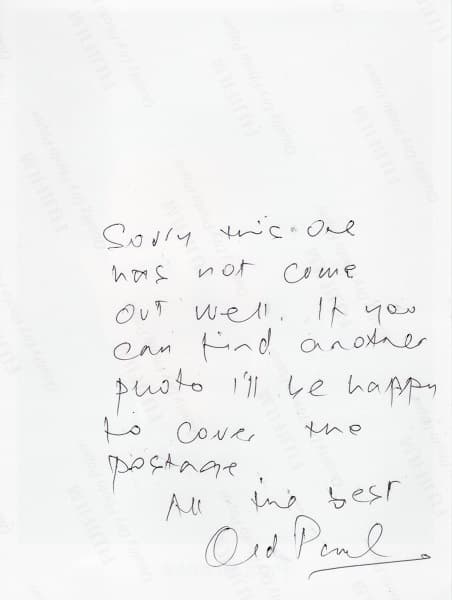 Sorry this one
has not come
out well. If you
can find another
photo I'll be happy
to cover the
postage
All the best
Old Paul